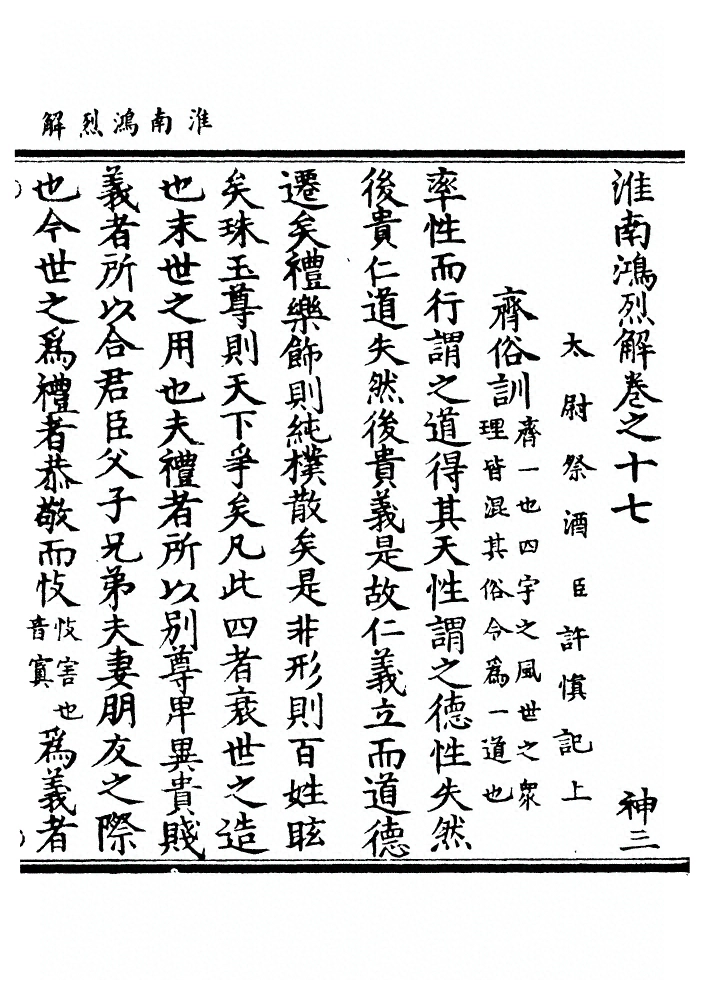 淮南鴻烈解
淮南鴻烈解卷之十七 神三
太尉祭酒臣許慎記上
齊俗訓 齊一也四宇之風世之衆
理皆混其俗令爲一道也
率性而行謂之道得其天性謂之德性失然
後貴仁道失然後貴義是故仁義立而道德
遷矣禮樂飾則純樸散矣是非形則百姓眩
矣珠玉尊則天下爭矣凡此四者衰世之造
也末世之用也夫禮者所以别尊卑異貴賤
義者所以合君臣父子兄弟夫妻朋友之際
也今世之爲禮者恭敬而忮 忮害也
音寘 爲義者